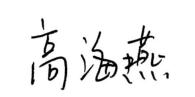 高海燕